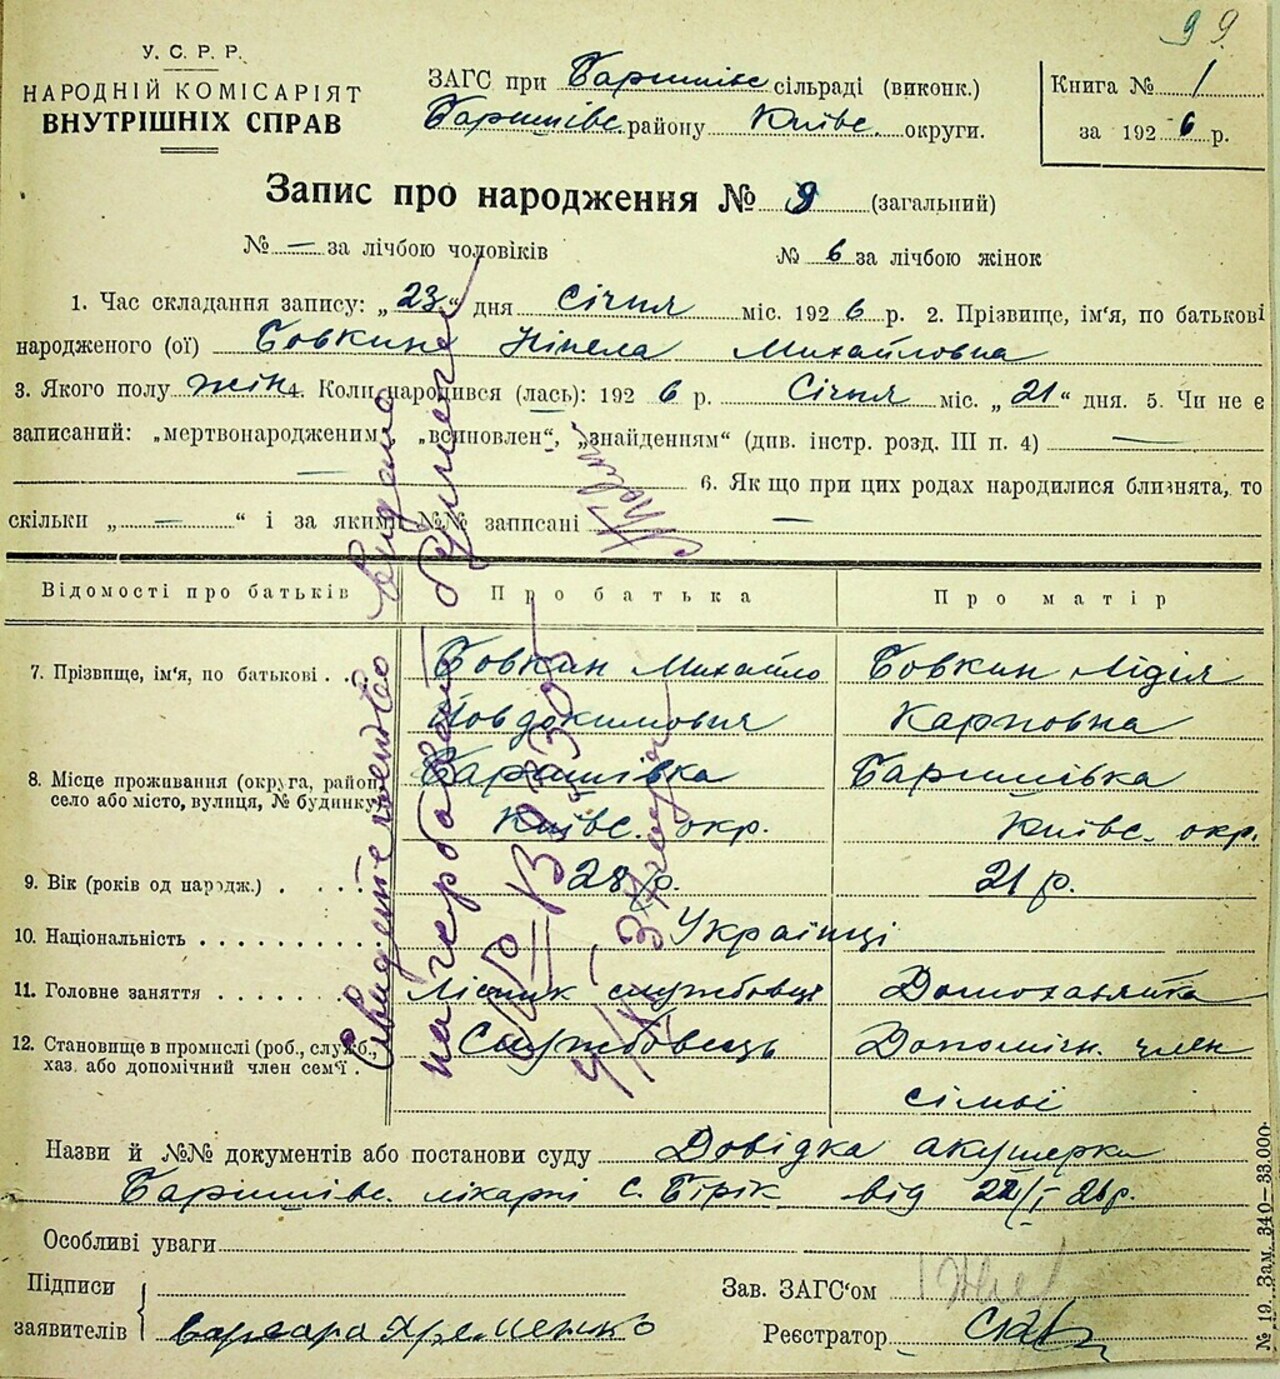 99.
У. С. Р. Р.
НАРОДНІЙ КОМІСАРІЯТ
ВНУТРІШНІХ СПРАВ
ЗАГС при Баришівс сільраді (виконк.)
Баришівс. району Київс. округи.
Книга № 1
за 1926 р.
Запис про народження № 9 (загальний)
№ — за лічбою чоловіків № 6 за лічбою жінок
1. Час складання запису: „23“ дня Січня міс. 1926 р. 2. Прізвище, ім'я, по батькові
народженого (ої) Бовкине Нінела Михайловна
3. Якого полу жін 4. Коли народився (лась): 1926 р. Січня міс. „21“ дня. 5. Чи не є
записаний: „мертвонародженим, „всиновлен“, „знайденням“ (див. інстр. розд. III п. 4) —
— 6. Як що при цих родах народилися близнята, то
скільки „ — “ і за якими №№ записані —
Відомості про батьків Про батька Про матір
7. Прізвище, ім'я, по батькові . . Бовкин Михайло Бовкин Лідія
Йовдокимович Карповна
8. Місце проживання (округа, район, Баришівка Баришівка
село або місто, вулиця, № будинку) Київс. окр. Київс. окр.
9. Вік (років од народж.) . . . . 28 р. 21 р.
10. Національність . . . . . . . . . . Українці
11. Головне заняття . . . . . . . службовця Домохазяйка
12. Становище в промислі (роб., служб., Службовець Допомічн. член
хаз. або допомічний член сем'ї . сімьі
Назви й №№ документів або постанови суду Довідка акушерки
Баришівс. лікарні с. Бірік від 22/I 26 р.
Особливі уваги
Підписи
заявителів Варвара Хременко
Зав. ЗАГС'ом
Реєстратор
№ 19. Зам. 340—33.000.
Свидетельство выдано